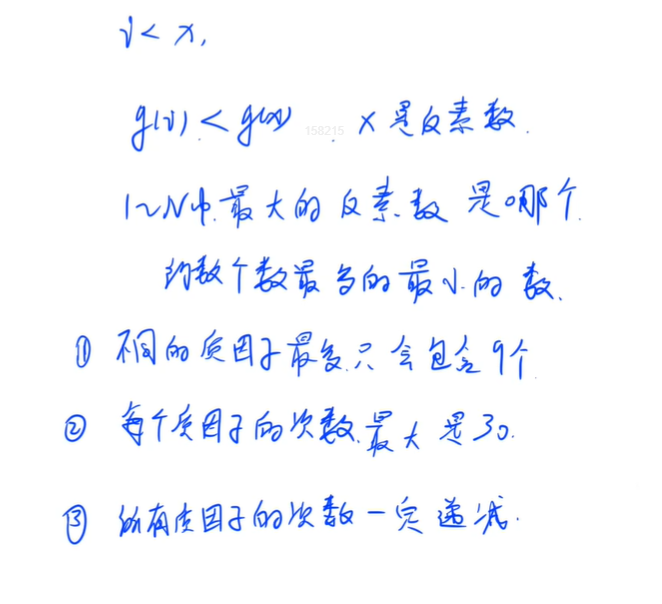 i < x,
g(i) < g(x) 158215 . x是反素数.
1~N中最大的反素数是哪个
约数个数最多的最小的数.
① 不同的质因子最多只会包含9个
② 每个质因子的次数最大是30.
③ 所有质因子的次数一定递减.